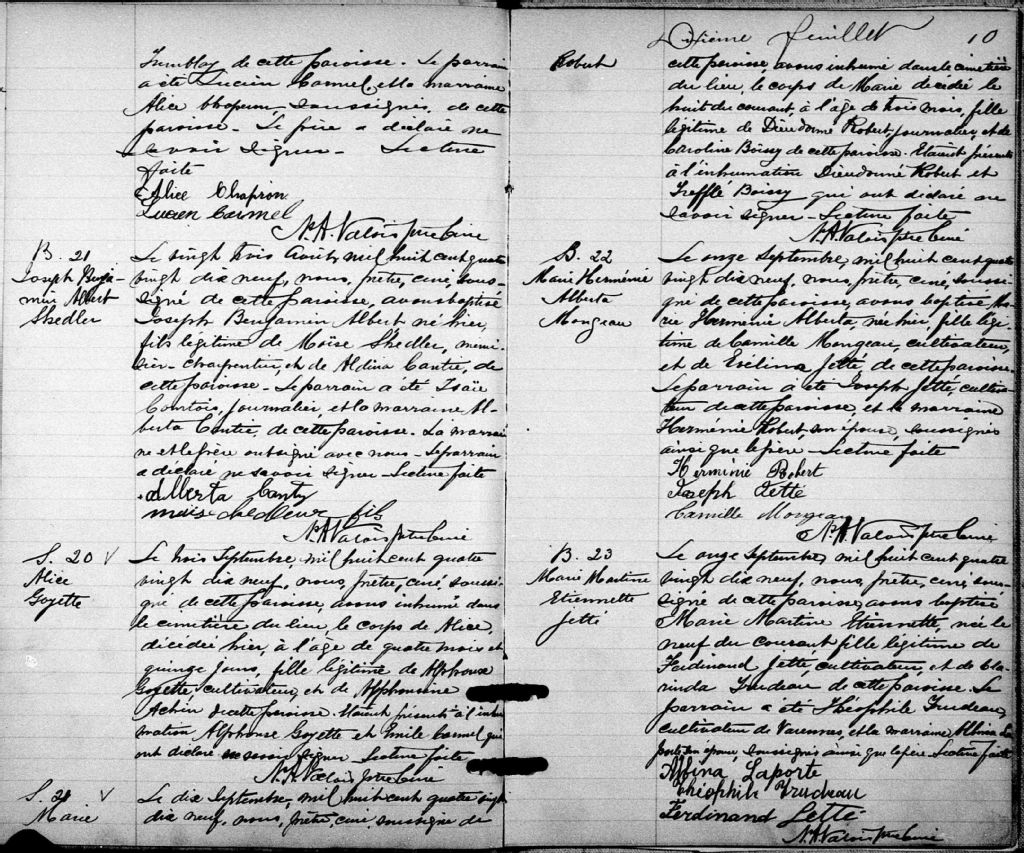 Tremblay de cette paroisse. Le parrain
a été Lucien Carmel, et la marraine
Alice Chaperon, soussignés, de cette
paroisse. Le père a déclaré ne
savoir signer. Lecture
faite
Alice Chapron
Lucien Carmel
N. A. Valois ptre curé
B. 21
Joseph Benja-
min Albert
Shedler
Le vingt trois Août, mil huit cent quatre
vingt dix neuf, nous, prêtre, curé, sous-
signé de cette paroisse, avons baptisé
Joseph Benjamin Albert né hier,
fils légitime de Moïse Shedler, menui-
sier-charpentier et de Aldina Cantre, de
cette paroisse. Le parrain a été Isaïe
Courtois, journalier, et la marraine Al-
berta Cantre, de cette paroisse. La marrai
ne et le père ont signé avec nous. Le parrain
a déclaré ne savoir signer. Lecture faite
Alberta Canty
fils
N. A. Valois ptre curé
S. 20 V
Alice
Goyette
Le trois Septembre, mil huit cent quatre
vingt dix neuf, nous, prêtre, curé, soussi-
gné de cette paroisse, avons inhumé dans
le cimetière du lieu, le corps de Alice,
décédée hier, à l'âge de quatre mois et
quinze jours, fille légitime de Alphonse
Goyette, cultivateur, et de Alphonsine
Achin de cette paroisse. Etaient présents à l'inhu
mation Alphonse Goyette et Emile Carmel qui
ont déclaré ne savoir signer. Lecture faite
N. A. Valois ptre curé
S. 21 V
Marie
Le dix Septembre, mil huit cent quatre vingt
dix neuf, nous, prêtre, curé, soussigné de
Dixième feuillet 10
Robert
cette paroisse, avons inhumé dans le cimetière
du lieu, le corps de Marie décédée le
huit du courant, à l'âge de trois mois, fille
légitime de Dieudonné Robert, journalier, et de
Caroline Boissy de cette paroisse. Etaient présents
à l'inhumation Dieudonné Robert et
Trefflé Boissy qui ont déclaré ne
savoir signer. Lecture faite
N. A. Valois ptre curé
B. 22
Marie Herménie
Alberta
Mongeau
Le onze Septembre, mil huit cent quatre
vingt dix neuf, nous, prêtre, curé, soussi-
gné de cette paroisse, avons baptisé Ma-
rie Herménie Alberta née hier, fille légi-
time de Camille Mongeau, cultivateur,
et de Exélina Jetté, de cette paroisse.
Le parrain a été Joseph Jetté, cultiva-
teur de cette paroisse, et la marraine
Herménie Robert, son épouse, soussignés
ainsi que le père. Lecture faite
Herminie Robert
Joseph Jetté
Camille Mongeau
N. A. Valois ptre curé
B. 23
Marie Martine
Etiennette
Jetté
Le onze Septembre, mil huit cent quatre
vingt dix neuf, nous, prêtre, curé, sous-
signé de cette paroisse, avons baptisé
Marie Martine Etiennette née le
neuf du courant fille légitime de
Ferdinand Jetté, cultivateur, et de Cla-
rinda Trudeau de cette paroisse. Le
parrain a été Théophile Trudeau,
cultivateur de Varennes, et la marraine Albina La
porte son épouse, soussignés ainsi que le père. Lecture faite
Albina Laporte
Théophile Trudeau
Ferdinand Jetté
N. A. Valois ptre curé